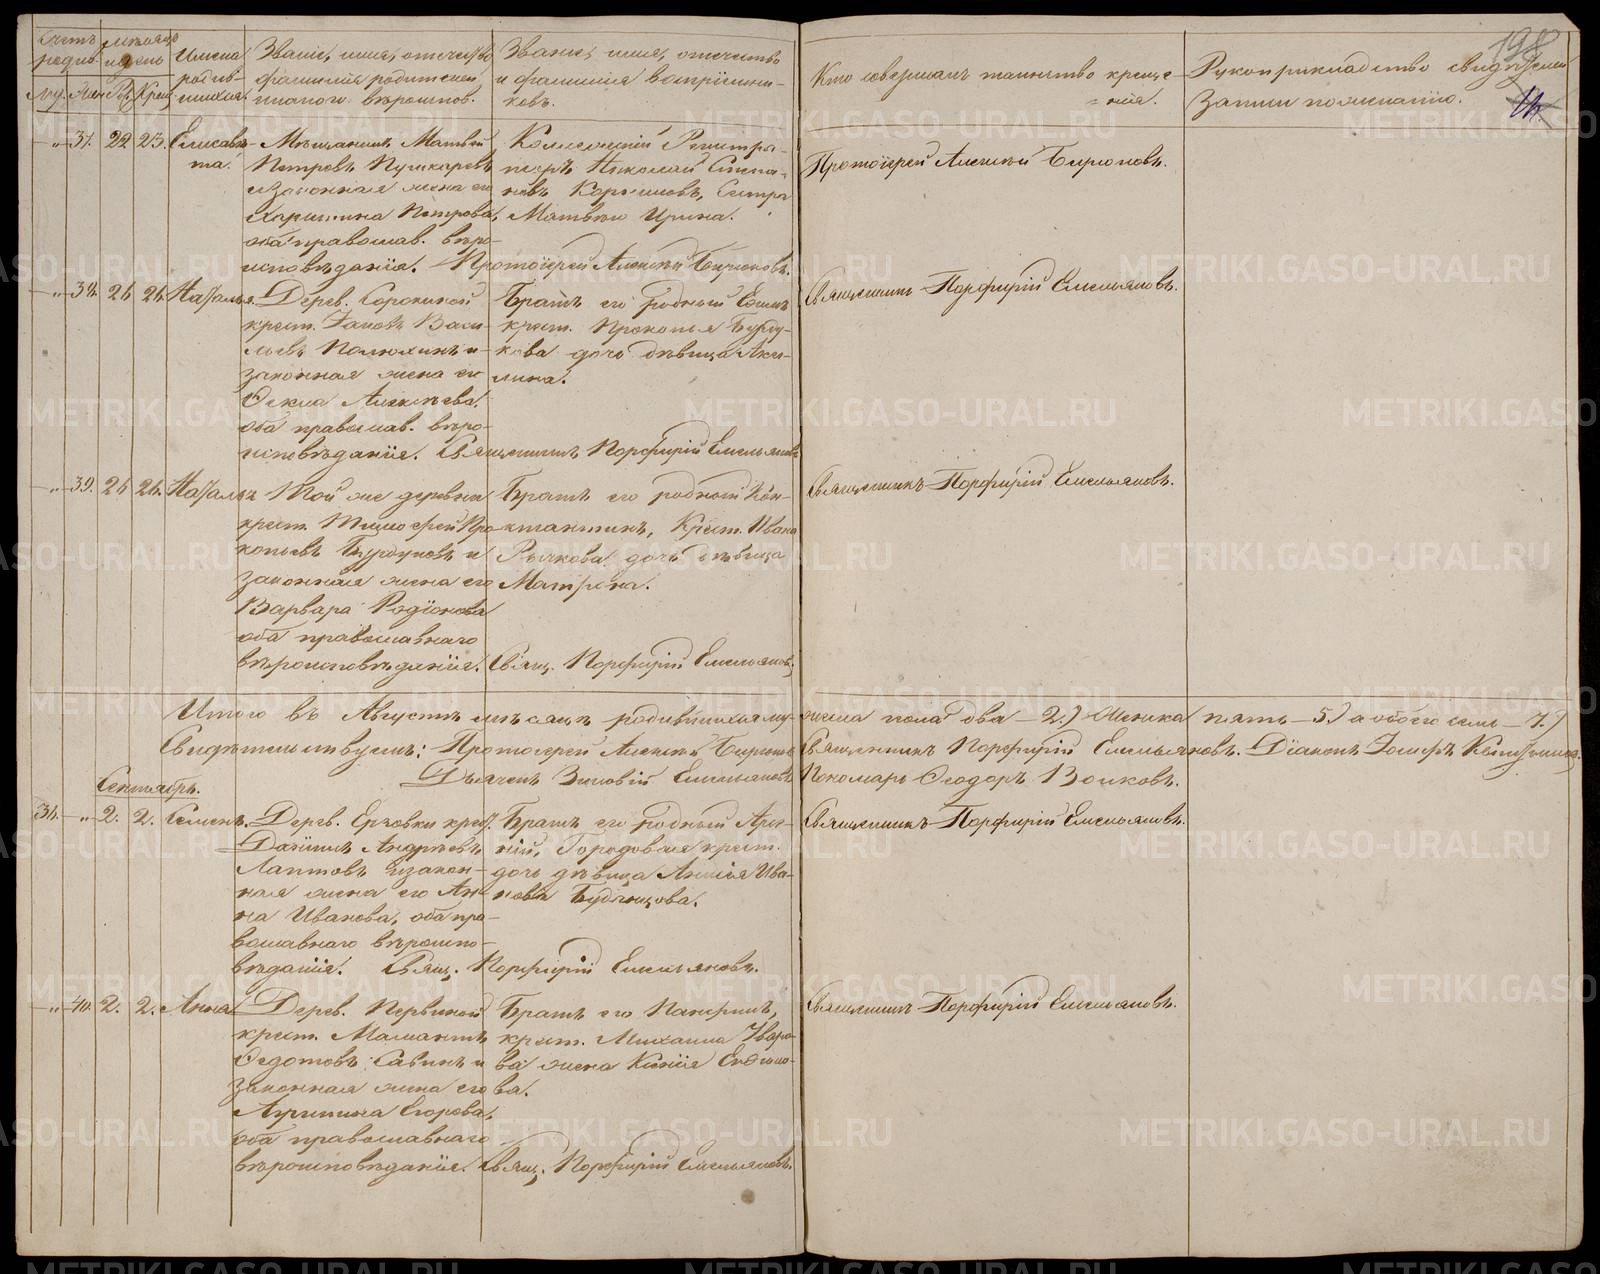 Счетъ родив.
Мѣсяцъ и день
Имена родив-
шихся.
Званіе, имя, отчество
фамилія родителей,
и какого вѣроиспов.
Званіе, имя, отчество
и фамилія воспріемни-
ковъ.
Кто совершалъ таинство креще-
нія.
Рукоприкладство свидѣтелей
записи по желанію.
198
Му. Жен. Рож. Крещ.
„ 37. 22 23. Елисаве-
та.
Мѣщанинъ Матвѣй
Петровъ Пушкаревъ
и законная жена его
Харитина Петрова,
оба православ. вѣро-
исповѣданія. Протоіерей Алексѣй Бирюковъ.
Коллежскій Регистра-
торъ Николай Степа-
новъ Сестра
Матвѣя Ирина.
Протоіерей Алексѣй Бирюковъ.
„ 38. 24 24. Наталья.
Дерев. Сорокиной
крест. Іаковъ Васи-
льевъ и
законная жена его
Ѳекла Алексѣева,
оба православ. вѣро-
исповѣданія. Священникъ Порфирій Емельяновъ
Братъ его родный
крест. Прокопья Бурду-
кова дочь дѣвица Аку-
лина.
Священникъ Порфирій Емельяновъ.
„ 39. 24 24. Наталья
Той же деревни
крест. Тимофей Про-
копьевъ Бурдуковъ и
законная жена его
Варвара Родіонова
оба православнаго
вѣроисповѣданія. Свящ. Порфирій Емельяновъ,
Братъ его родный Кон-
стантинъ, Крест. Ивана
Рычкова дочь дѣвица
Матрена.
Священникъ Порфирій Емельяновъ.
Итого въ Августѣ мѣсяцѣ родившихся му-
жеска пола два – 2.) Женска пять – 5.) а обоего семь – 7.)
Свидѣтельствуемъ: Протоіерей Алексѣй Бирюковъ
Священникъ Порфирій Емельяновъ. Діаконъ Іосифъ
Дьячекъ Зиновій Емельяновъ
Пономарь Ѳеодоръ Волковъ.
Сентябрь.
34. „ 2. 2. Семенъ.
Дерев. Ерзовки крест.
Даніилъ Андреевъ
Лаптовъ и закон-
ная жена его Ан-
на Иванова, оба пра-
вославнаго вѣроиспо-
вѣданія. Свящ. Порфирій Емельяновъ.
Братъ его родный Арсе-
ній, Городовая крест.
дочь дѣвица Ива-
нова
Священникъ Порфирій Емельяновъ.
„ 40. 2. 2. Анна
Дерев. Первиной
крест. Мамантъ
Ѳедотовъ Савинъ и
законная жена его
Агрипина Егорова,
оба православнаго
вѣроисповѣданія. Свящ. Порфирій Емельяновъ.
Братъ его
крест. Михаила Уваро-
ва жена Ксенія Евдоки-
ва.
Священникъ Порфирій Емельяновъ.
METRIKI.GASO-URAL.RU